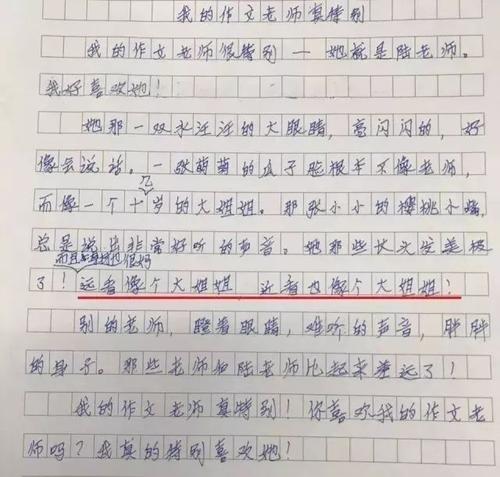 我的作文老师真特别
我的作文老师很特别—她就是陆老师。
我好喜欢她！
她那一双水汪汪的大眼睛，亮闪闪的，好
像会说话。一张萌萌的瓜子脸根本不像老师，
几
而像一个十岁的大姐姐。那张小小的樱桃小嘴，
总是说出非常好听的声音。她那些长头发美极
而且也很好
了！远看像个大姐姐，近看也像个大姐姐！
别的老师，瞪着眼睛，难听的声音，胖胖
的身子。那些老师和陆老师比起来差远了！
我的作文老师真特别！你喜欢我的作文老
师吗？我真的特别喜欢她！